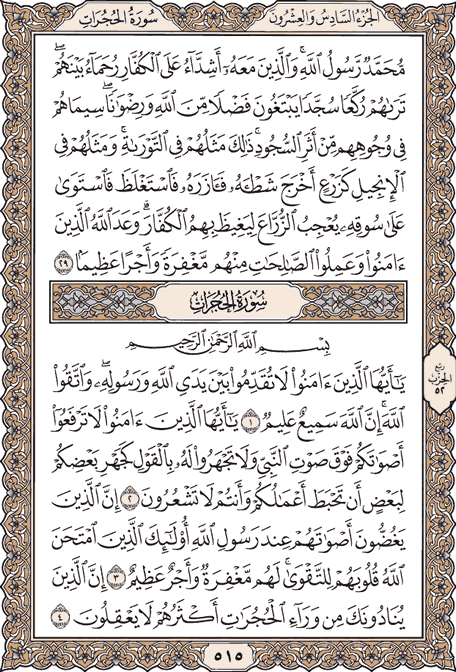 سُورَةُ الْحُجُرَاتِ
الجُزْءُ السَّادِسُ وَالعِشْرُونَ
مُّحَمَّدٌ رَّسُولُ اللَّهِ ۚ وَالَّذِينَ مَعَهُۥٓ أَشِدَّآءُ عَلَى الْكُفَّارِ رُحَمَآءُ بَيْنَهُمْ ۖ
تَرَىٰهُمْ رُكَّعًا سُجَّدًا يَبْتَغُونَ فَضْلًا مِّنَ اللَّهِ وَرِضْوَٰنًا ۖ سِيمَاهُمْ
فِى وُجُوهِهِم مِّنْ أَثَرِ السُّجُودِ ۚ ذَٰلِكَ مَثَلُهُمْ فِى التَّوْرَىٰةِ ۚ وَمَثَلُهُمْ فِى
الْإِنجِيلِ كَزَرْعٍ أَخْرَجَ شَطْـَٔهُۥ فَـَٔازَرَهُۥ فَاسْتَغْلَظَ فَاسْتَوَىٰ
عَلَىٰ سُوقِهِۦ يُعْجِبُ الزُّرَّاعَ لِيَغِيظَ بِهِمُ الْكُفَّارَ ۗ وَعَدَ اللَّهُ الَّذِينَ
ءَامَنُوا۟ وَعَمِلُوا۟ الصَّٰلِحَٰتِ مِنْهُم مَّغْفِرَةً وَأَجْرًا عَظِيمًۢا ٢٩
سُورَةُ الْحُجُرَاتِ
بِسْمِ اللَّهِ الرَّحْمَٰنِ الرَّحِيمِ
يَٰٓأَيُّهَا الَّذِينَ ءَامَنُوا۟ لَا تُقَدِّمُوا۟ بَيْنَ يَدَىِ اللَّهِ وَرَسُولِهِۦ ۖ وَاتَّقُوا۟
اللَّهَ ۚ إِنَّ اللَّهَ سَمِيعٌ عَلِيمٌ ١ يَٰٓأَيُّهَا الَّذِينَ ءَامَنُوا۟ لَا تَرْفَعُوٓا۟
أَصْوَٰتَكُمْ فَوْقَ صَوْتِ النَّبِىِّ وَلَا تَجْهَرُوا۟ لَهُۥ بِالْقَوْلِ كَجَهْرِ بَعْضِكُمْ
لِبَعْضٍ أَن تَحْبَطَ أَعْمَٰلُكُمْ وَأَنتُمْ لَا تَشْعُرُونَ ٢ إِنَّ الَّذِينَ
يَغُضُّونَ أَصْوَٰتَهُمْ عِندَ رَسُولِ اللَّهِ أُو۟لَٰٓئِكَ الَّذِينَ امْتَحَنَ
اللَّهُ قُلُوبَهُمْ لِلتَّقْوَىٰ ۚ لَهُم مَّغْفِرَةٌ وَأَجْرٌ عَظِيمٌ ٣ إِنَّ الَّذِينَ
يُنَادُونَكَ مِن وَرَآءِ الْحُجُرَٰتِ أَكْثَرُهُمْ لَا يَعْقِلُونَ ٤
ربع
الحزب
٥٢
٥١٥